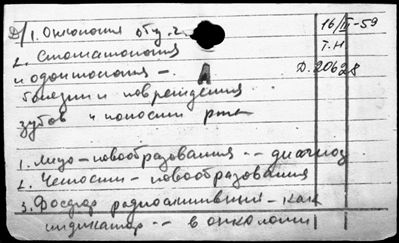 Д/1. Онкология общ. ч. 16/III-59
2. Стоматология Т.Н
и одонтология - А Д. 20628
болезни и повреждения
зубов и полости рта
1. Лицо - новообразования -- диагноз
2. Челюсти - новообразования
3. Фосфор радиоактивный - как
индикатор -- в онкологии